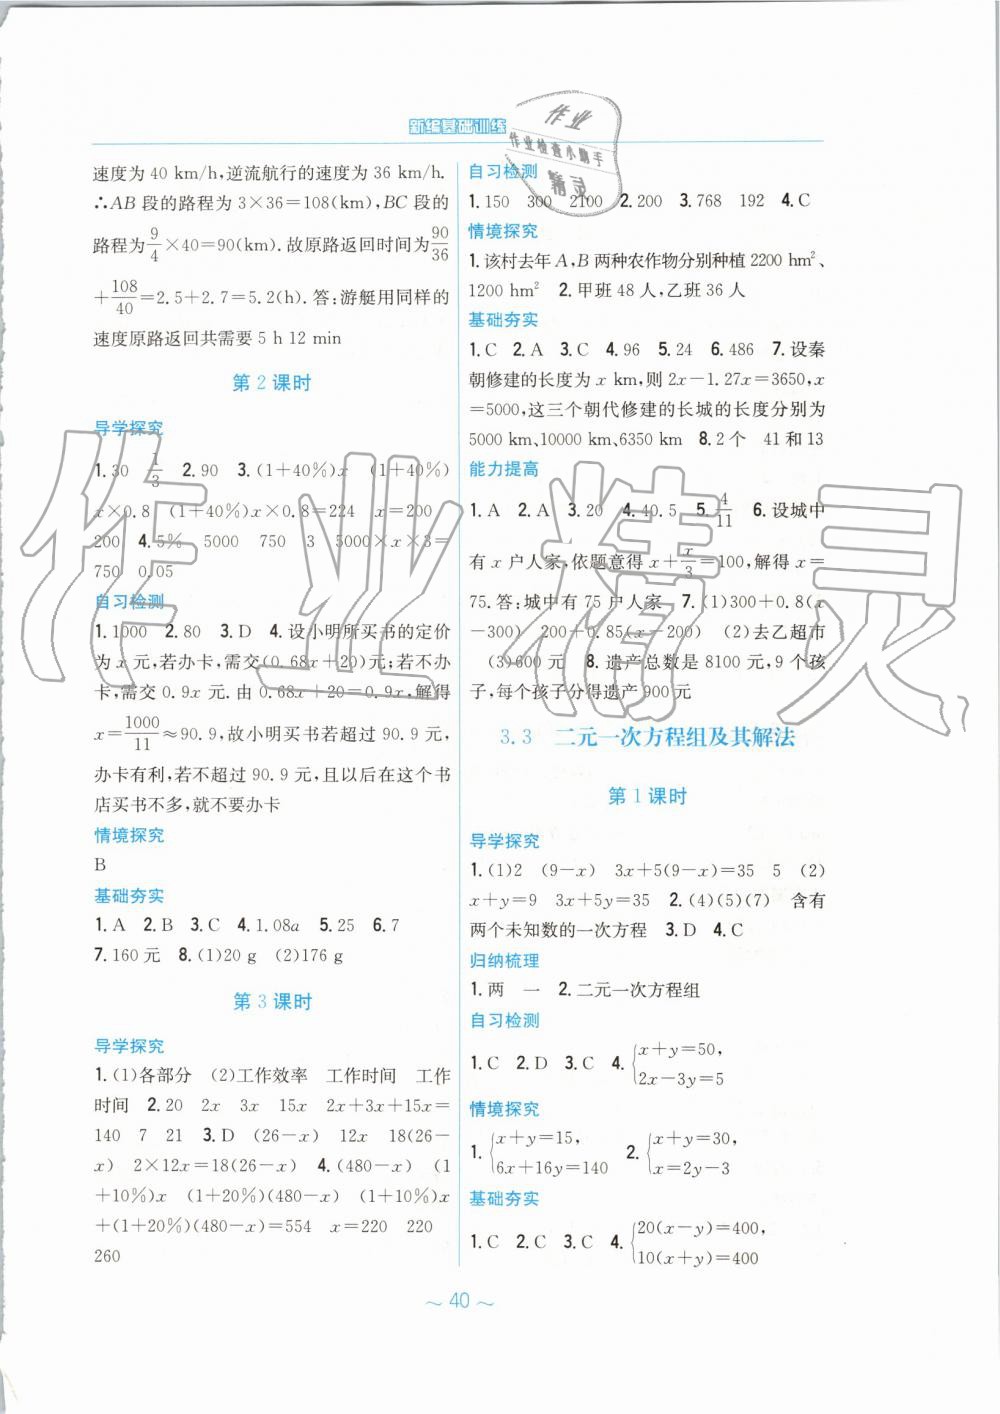 新编基础训练
作业
作业检查小助手
精灵
速度为 40 km/h,逆流航行的速度为 36 km/h.
∴AB 段的路程为 3×36=108(km),BC 段的
路程为9/4×40=90(km).故原路返回时间为90/36
+108/40=2.5+2.7=5.2(h).答:游艇用同样的
速度原路返回共需要 5 h 12 min
第 2 课时
导学探究
1.30 1/3 2.90 3.(1+40%)x (1+40%)
x×0.8 (1+40%)x×0.8=224 x=200
200 4.5% 5000 750 3 5000×x×3=
750 0.05
自习检测
1.1000 2.80 3.D 4.设小明所买书的定价
为 x 元,若办卡,需交(0.68x+20)元;若不办
卡,需交 0.9x 元.由 0.68x+20=0.9x,解得
x=1000/11≈90.9,故小明买书若超过 90.9 元,
办卡有利,若不超过 90.9 元,且以后在这个书
店买书不多,就不要办卡
情境探究
B
基础夯实
1.A 2.B 3.C 4.1.08a 5.25 6.7
7.160 元 8.(1)20 g (2)176 g
第 3 课时
导学探究
1.(1)各部分 (2)工作效率 工作时间 工作
时间 2.20 2x 3x 15x 2x+3x+15x=
140 7 21 3.D (26-x) 12x 18(26-
x) 2×12x=18(26-x) 4.(480-x) (1
+10%)x (1+20%)(480-x) (1+10%)x
+(1+20%)(480-x)=554 x=220 220
260
自习检测
1.150 300 2100 2.200 3.768 192 4.C
情境探究
1.该村去年 A,B 两种农作物分别种植 2200 hm²、
1200 hm² 2.甲班 48 人,乙班 36 人
基础夯实
1.C 2.A 3.C 4.96 5.24 6.486 7.设秦
朝修建的长度为 x km,则 2x-1.27x=3650,x
=5000,这三个朝代修建的长城的长度分别为
5000 km、10000 km、6350 km 8.2 个 41 和 13
能力提高
1.A 2.A 3.20 4.40.5 5.4/11 6.设城中
有 x 户人家,依题意得 x+x/3=100,解得 x=
75.答:城中有 75 户人家 7.(1)300+0.8(x
-300) 200+0.85(x-200) (2)去乙超市
(3)600 元 8.遗产总数是 8100 元,9 个孩
子,每个孩子分得遗产 900 元
3.3 二元一次方程组及其解法
第 1 课时
导学探究
1.(1)2 (9-x) 3x+5(9-x)=35 5 (2)
x+y=9 3x+5y=35 2.(4)(5)(7) 含有
两个未知数的一次方程 3.D 4.C
归纳梳理
1.两 一 2.二元一次方程组
自习检测
1.C 2.D 3.C 4.{x+y=50,
2x-3y=5
情境探究
1.{x+y=15,
6x+16y=140 2.{x+y=30,
x=2y-3
基础夯实
1.C 2.C 3.C 4.{20(x-y)=400,
10(x+y)=400
~ 40 ~
作业精灵